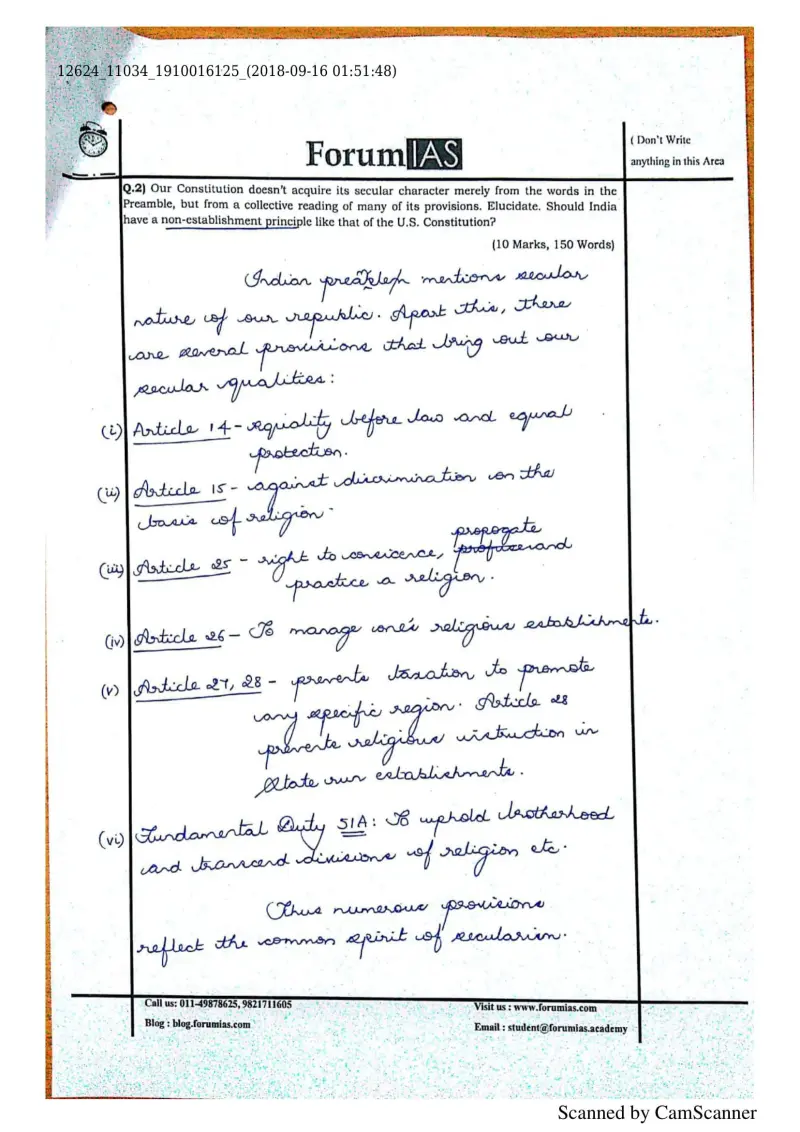 12624_11034_1910016125_(2018-09-16 01:51:48)
ForumIAS
( Don't Write
anything in this Area
Q.2) Our Constitution doesn't acquire its secular character merely from the words in the
Preamble, but from a collective reading of many of its provisions. Elucidate. Should India
have a non-establishment principle like that of the U.S. Constitution?
(10 Marks, 150 Words)
Indian mentions secular
nature of our republic. Apart this, there
are several provisions that bring out our
secular qualities:
(i) Article 14 - equality before law and equal
protection.
(ii) Article 15 - against discrimination on the
basis of religion.
propogate
(iii) Article 25 - right to concience, and
practice a religion.
(iv) Article 26 - To manage one's religious establishments.
(v) Article 27, 28 - prevents taxation to promote
any specific region. Article 28
prevents religious instruction in
State run establishments.
(vi) Fundamental Duty 51A: To uphold brotherhood
and transcend divisions of religion etc.
Thus numerous provisions
reflect the common spirit of secularism.
Call us: 011-49878625, 9821711605
Visit us : www.forumias.com
Blog : blog.forumias.com
Email : student@forumias.academy
Scanned by CamScanner